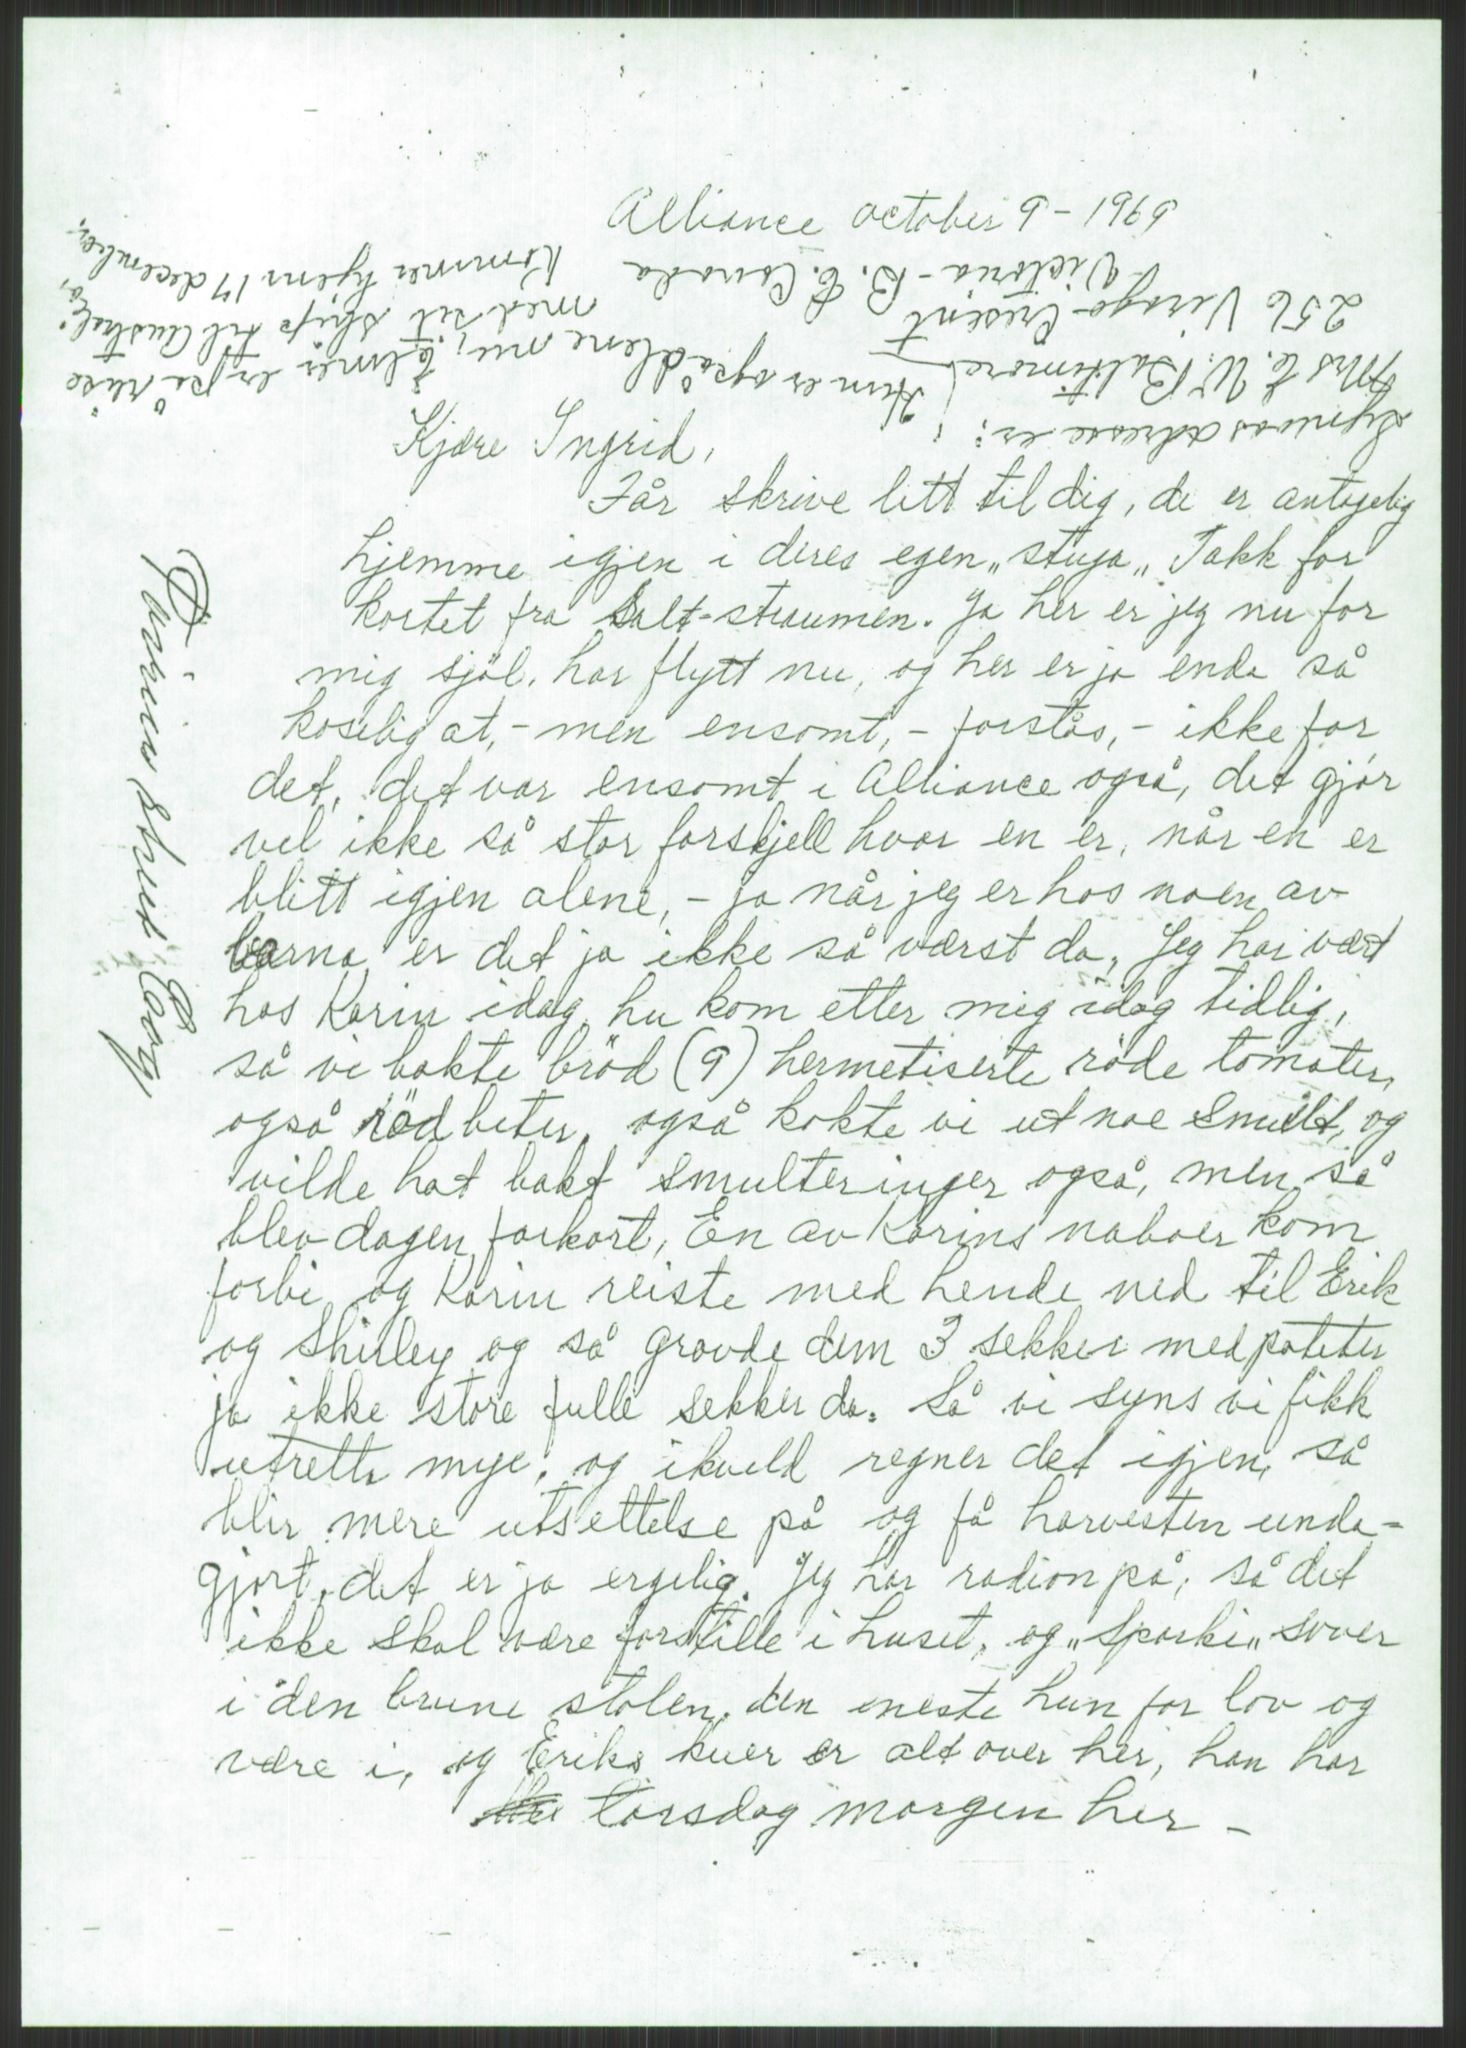 Alliance october 9 - 1969
Kjære Ingrid,
Får skrive litt til dig, de er antagelig
hjemme igjen i deres egen „stuga„ Takk for
kortet fra Salt-straumen. Ja her er jeg nu for
mig sjøl. har flytt nu, og her er ja enda så
koselig at, - men ensomt, - forstås, - ikke for
det, det var ensomt i Alliance også, det gjør
vel ikke så stor forskjell hvor en er, når en er
blitt igjen alene, - ja når jeg er hos noen av
barna er det ja ikke så værst da, Jeg har vært
hos Karin idag, hu kom etter mig idag tidlig,
så vi bakte bröd (9) hermetiserte röde tomater,
også rödbeter, også kokte vi ut noe smult, og
vilde hat bakt smulteringer også, men så
blev dagen forkort, En av Karins naboer kom
forbi og Karin reiste med hende ned til Erik
og Shirley og så gravde dem 3 sekker med poteter
ja ikke store fulle sekker da. Så vi syns vi fikk
utrette mye, og ikveld regner det igjen, så
blir mere utsettelse på og få harvesten unda-
gjort, det er ja ergelig. Jeg har radion på, så det
ikke skal være forstille i huset, og „Sparki„ sover
i den brune stolen, den eneste hun for lov og
være i, og Eriks kuer er alt over her, han har
torsdag morgen her -
Lyniwas adresse er:
Mrs E. W. Baltimore
256 Virago Cresent
Victoria - B. C. Canada
Hun er også alene nu, Elmer er på reise
med sit skip til Australia,
Kommer hjem 17 december,